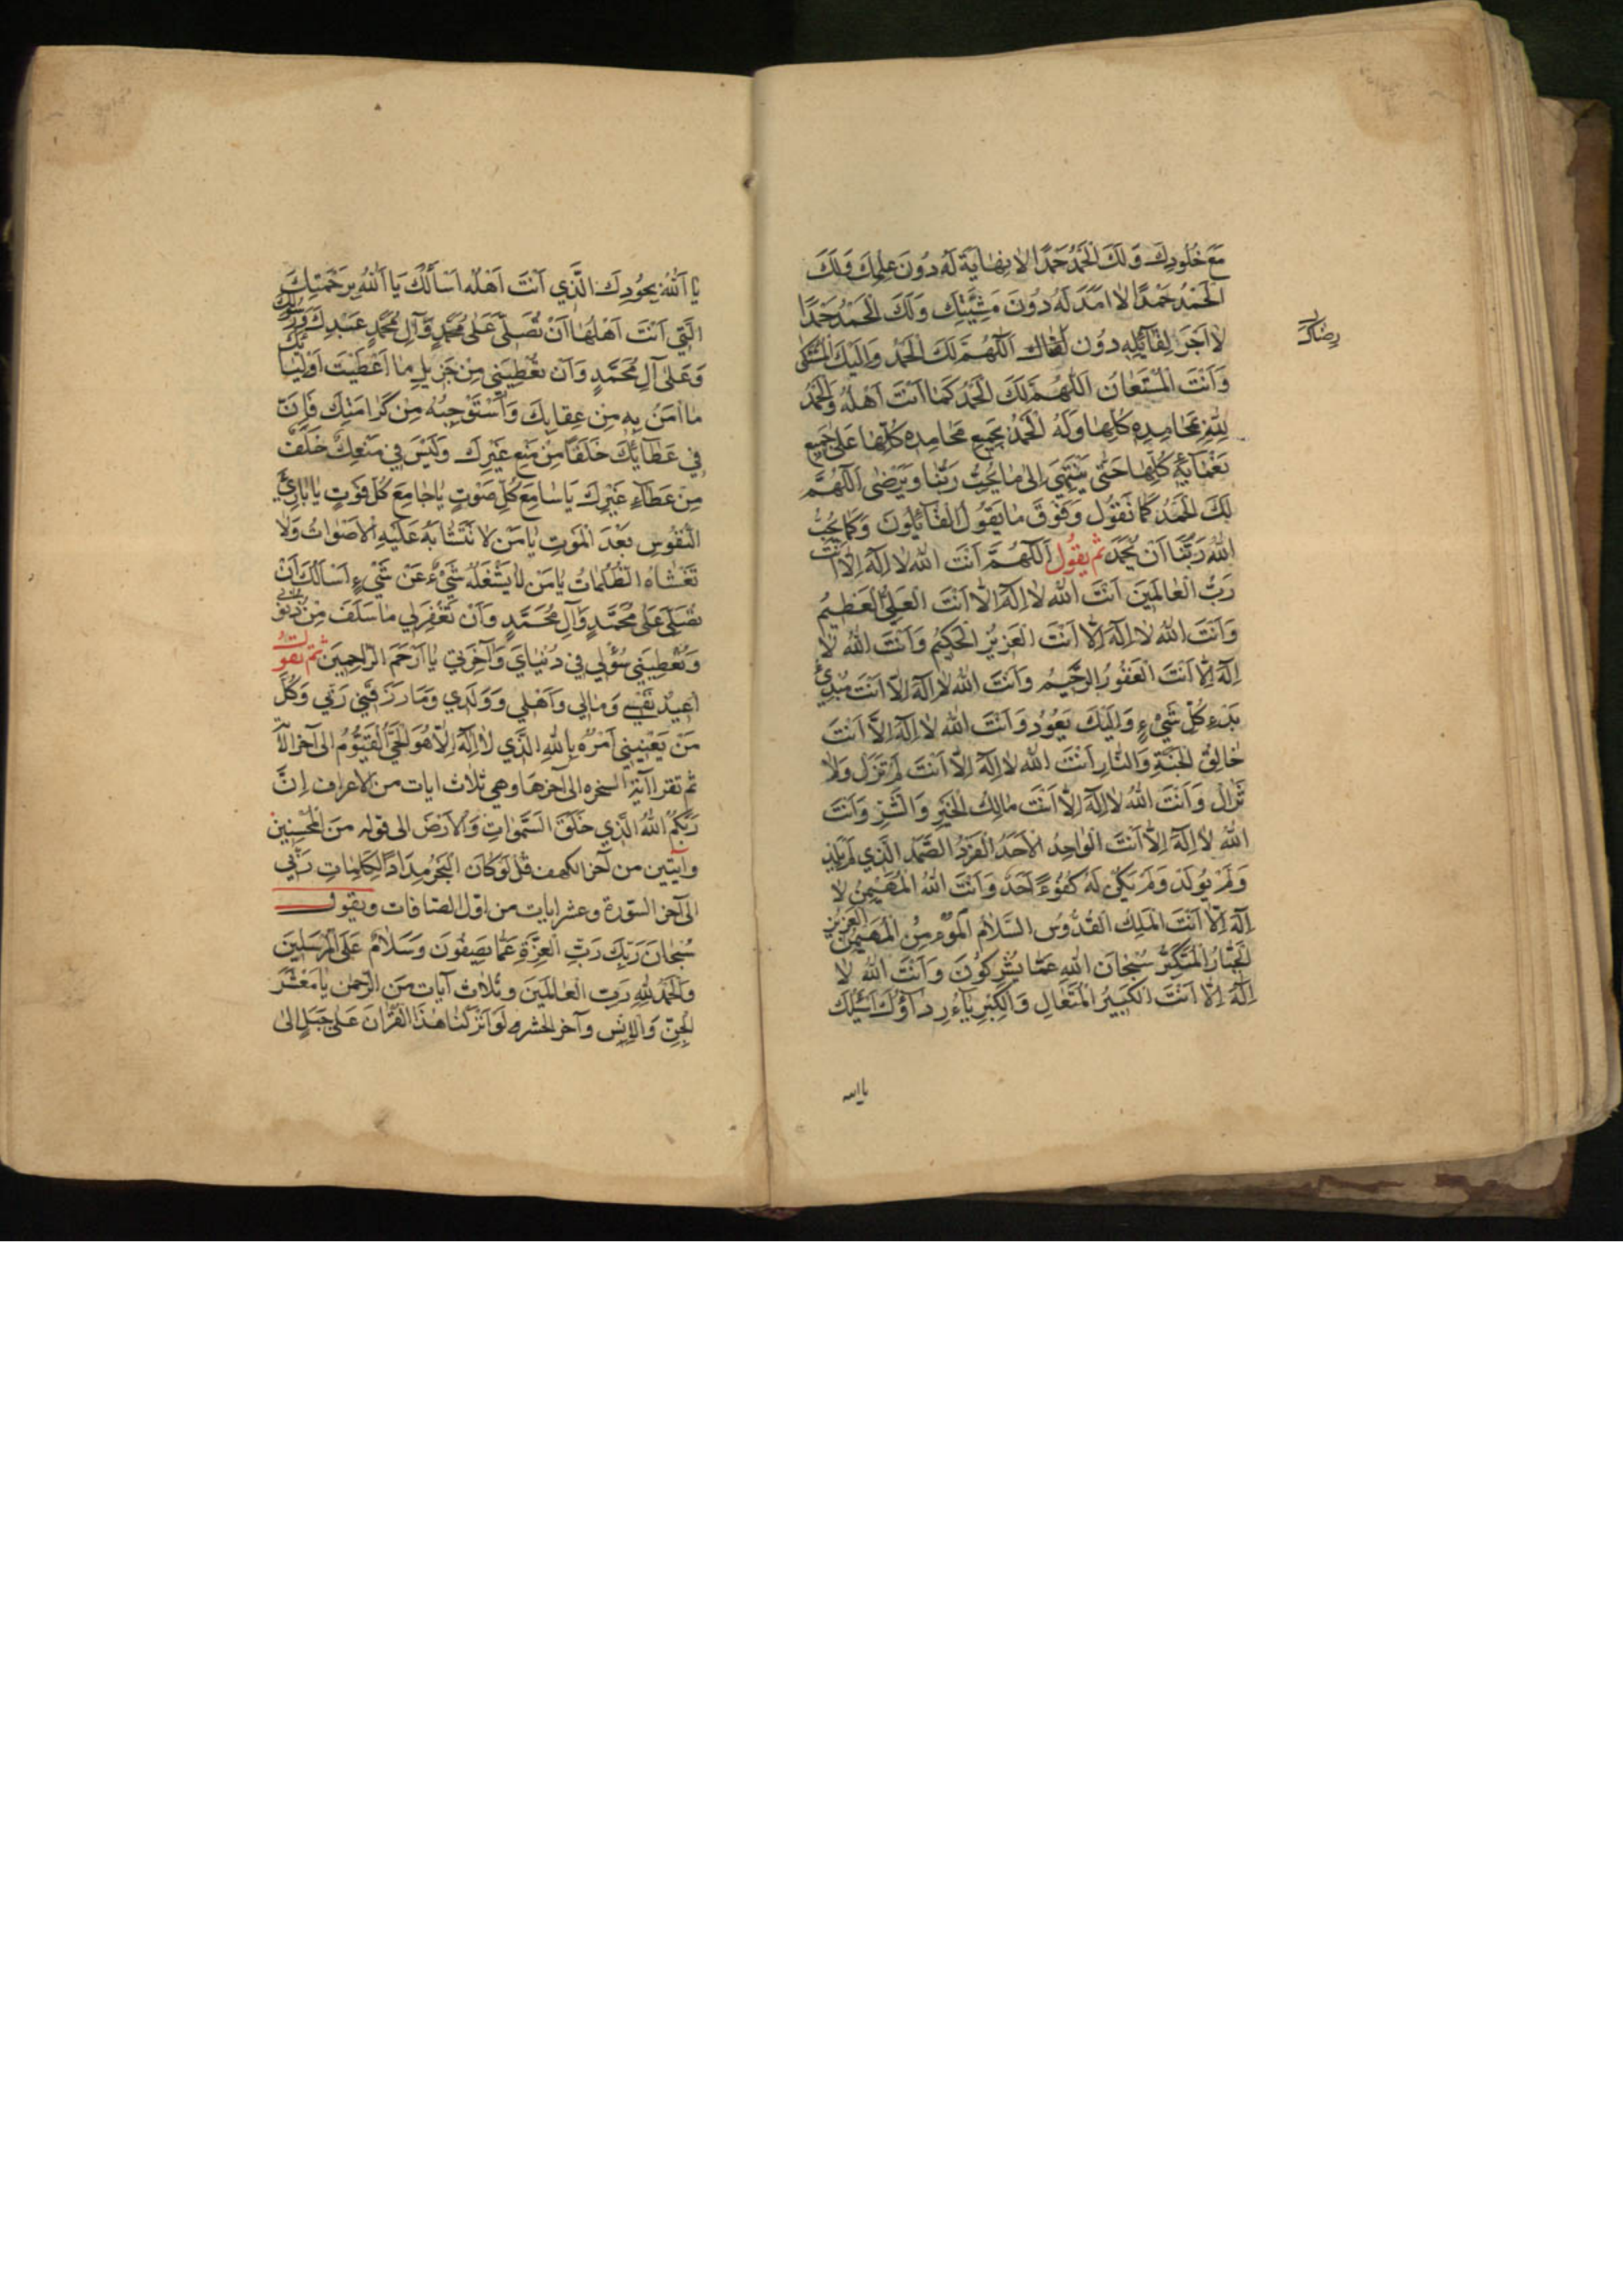 مَعَ خُلُودِكَ وَلَكَ الْحَمْدُ حَمْدًا لَا نِهَايَةَ لَهُ دُونَ عِلْمِكَ وَلَكَ
الْحَمْدُ حَمْدًا لَا اَمَدَ لَهُ دُونَ مَشِيَّتِكَ وَلَكَ الْحَمْدُ حَمْدًا
لَا اَجْرَ لِقَآئِلِهِ دُونَ اَللّٰهُمَّ لَكَ الْحَمْدُ وَاِلَيْكَ الْمُشْتَكٰى
رِضَاكَ
وَاَنْتَ الْمُسْتَعَانُ اَللّٰهُمَّ لَكَ الْحَمْدُ كَمَا اَنْتَ اَهْلُهُ وَالْحَمْدُ
لِلّٰهِ بِمَحَامِدِهِ كُلِّهَا وَلَهُ الْحَمْدُ بِجَمِيعِ مَحَامِدِهِ كُلِّهَا عَلٰى جَمِيعِ
نَعْمَآئِهِ كُلِّهَا حَتّٰى يَنْتَهِيَ اِلٰى مَا يُحِبُّ رَبُّنَا وَيَرْضٰى اَللّٰهُمَّ
لَكَ الْحَمْدُ كَمَا نَقُولُ وَفَوْقَ مَا يَقُولُ الْقَآئِلُونَ وَكَمَا يُحِبُّ
اللّٰهُ رَبُّنَا اَنْ يُحْمَدَ ثم يقُول اَللّٰهُمَّ اَنْتَ اللّٰهُ لَا اِلٰهَ اِلَّا اَنْتَ
رَبُّ الْعَالَمِينَ اَنْتَ اللّٰهُ لَا اِلٰهَ اِلَّا اَنْتَ الْعَلِيُّ الْعَظِيمُ
وَاَنْتَ اللّٰهُ لَا اِلٰهَ اِلَّا اَنْتَ الْعَزِيزُ الْحَكِيمُ وَاَنْتَ اللّٰهُ لَا
اِلٰهَ اِلَّا اَنْتَ الْغَفُورُ الرَّحِيمُ وَاَنْتَ اللّٰهُ لَا اِلٰهَ اِلَّا اَنْتَ مُبْدِئُ
بَدْءِ كُلِّ شَيْءٍ وَاِلَيْكَ يَعُودُ وَاَنْتَ اللّٰهُ لَا اِلٰهَ اِلَّا اَنْتَ
خَالِقُ الْجَنَّةِ وَالنَّارِ اَنْتَ اللّٰهُ لَا اِلٰهَ اِلَّا اَنْتَ لَمْ تَزَلْ وَلَا
تَزَالُ وَاَنْتَ اللّٰهُ لَا اِلٰهَ اِلَّا اَنْتَ مَالِكُ الْخَيْرِ وَالشَّرِّ وَاَنْتَ
اللّٰهُ لَا اِلٰهَ اِلَّا اَنْتَ الْوَاحِدُ الْاَحَدُ الْفَرْدُ الصَّمَدُ الَّذِي لَمْ يَلِدْ
وَلَمْ يُولَدْ وَلَمْ يَكُنْ لَهُ كُفُوءًا اَحَدٌ وَاَنْتَ اللّٰهُ الْمُهَيْمِنُ لَا
اِلٰهَ اِلَّا اَنْتَ الْمَلِكُ الْقُدُّوسُ السَّلَامُ الْمُؤْمِنُ الْمُهَيْمِنُ الْعَزِيزُ
الْجَبَّارُ الْمُتَكَبِّرُ سُبْحَانَ اللّٰهِ عَمَّا يُشْرِكُونَ وَاَنْتَ اللّٰهُ لَا
اِلٰهَ اِلَّا اَنْتَ الْكَبِيرُ الْمُتَعَالِ وَالْكِبْرِيَآءُ رِدَآؤُكَ اَسْئَلُكَ
يا الله
يَا اَللّٰهُ بِجُودِكَ الَّذِي اَنْتَ اَهْلُهُ اَسْاَلُكَ يَا اَللّٰهُ بِرَحْمَتِكَ
الَّتِي اَنْتَ اَهْلُهَا اَنْ تُصَلِّيَ عَلٰى مُحَمَّدٍ وَآلِ مُحَمَّدٍ عَبْدِكَ وَرَسُولِكَ
وَعَلٰى آلِ مُحَمَّدٍ وَاَنْ تُعْطِيَنِي مِنْ جَزِيلِ مَا اَعْطَيْتَ اَوْلِيَآئَكَ
مَا اٰمَنُ بِهِ مِنْ عِقَابِكَ وَاَسْتَوْجِبُهُ مِنْ كَرَامَتِكَ فَاِنَّ
فِي عَطَآئِكَ خَلَفًا مِنْ مَنْعِ غَيْرِكَ وَلَيْسَ فِي مَنْعِكَ خَلَفٌ
مِنْ عَطَآءِ غَيْرِكَ يَا سَامِعَ كُلِّ صَوْتٍ يَا جَامِعَ كُلِّ فَوْتٍ يَا بَارِئَ
النُّفُوسِ بَعْدَ الْمَوْتِ يَا مَنْ لَا تَتَشَابَهُ عَلَيْهِ الْاَصْوَاتُ وَلَا
تَغْشَاهُ الظُّلُمَاتُ يَا مَنْ لَا يَشْغَلُهُ شَيْءٌ عَنْ شَيْءٍ اَسْاَلُكَ اَنْ
تُصَلِّيَ عَلٰى مُحَمَّدٍ وَآلِ مُحَمَّدٍ وَاَنْ تَغْفِرَ لِي مَا سَلَفَ مِنْ ذُنُوبِي
وَتُعْطِيَنِي سُؤْلِي فِي دُنْيَايَ وَآخِرَتِي يَا اَرْحَمَ الرَّاحِمِينَ ثم تقول
اُعِيذُ نَفْسِي وَمَالِي وَاَهْلِي وَوَلَدِي وَمَا رَزَقَنِي رَبِّي وَكُلَّ
مَنْ يَعْنِينِي اَمْرُهُ بِاللّٰهِ الَّذِي لَا اِلٰهَ اِلَّا هُوَ الْحَيُّ الْقَيُّومُ الى آخر
ثم تقرا آية السخره الى آخرها وهي ثلاث ايات من الاعراف اِنَّ
رَبَّكُمُ اللّٰهُ الَّذِي خَلَقَ السَّمٰوَاتِ وَالْاَرْضَ الى قوله مِنَ الْمُحْسِنِينَ
وآيتين من آخر الكهف قُلْ لَوْ كَانَ الْبَحْرُ مِدَادًا لِكَلِمَاتِ رَبِّي
الى آخر السّورة وعشر ايات من اوّل الصّافات ويقول
سُبْحَانَ رَبِّكَ رَبِّ الْعِزَّةِ عَمَّا يَصِفُونَ وَسَلَامٌ عَلَى الْمُرْسَلِينَ
وَالْحَمْدُ لِلّٰهِ رَبِّ الْعَالَمِينَ وثلاث آيات من الرّحمن يَا مَعْشَرَ
الْجِنِّ وَالْاِنْسِ وآخر الحشر لَوْ اَنْزَلْنَا هٰذَا الْقُرْآنَ عَلٰى جَبَلٍ الى